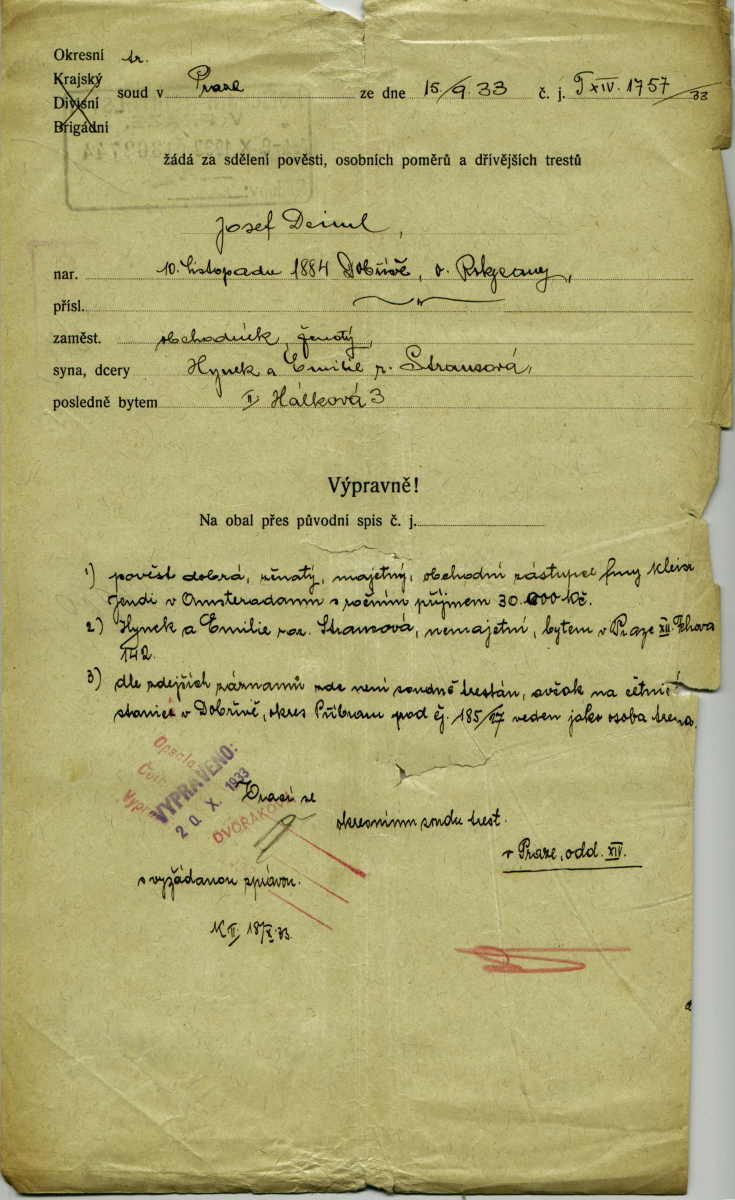 Okresní tr.
Krajský
Divisní
Brigádní
soud v Praze ze dne 15/9. 33 č. j. T XIV. 1757/33
žádá za sdělení pověsti, osobních poměrů a dřívějších trestů
Josef Deiml,
nar. 10. listopadu 1884 Dobřívě, o. Rokycany,
přísl. "
zaměst. obchodník, ženatý,
syna, dcery Hynek a Emilie r. Strausová,
posledně bytem II Hálková 3
Výpravně!
Na obal přes původní spis č. j.
1) pověst dobrá, ženatý, majetný, obchodní zástupce fmy
v Amsteradamu s ročním příjmem 30.000 Kč.
2) Hynek a Emilie roz. Strausová, nemajetní, bytem v Praze XII.
142.
3) dle zdejších záznamů zde není soudně trestán, avšak na četnic
stanici v Dobřívě, okres Příbram pod čj. 185/27 veden jako osoba trena.
VYPRAVENO:
20. X. 1933
DVOŘÁKOVÁ
Vrací se
okresnímu soudu trest.
v Praze, odd. XIV.
s vyžádanou zprávou.
K II/ 18/X. 33.